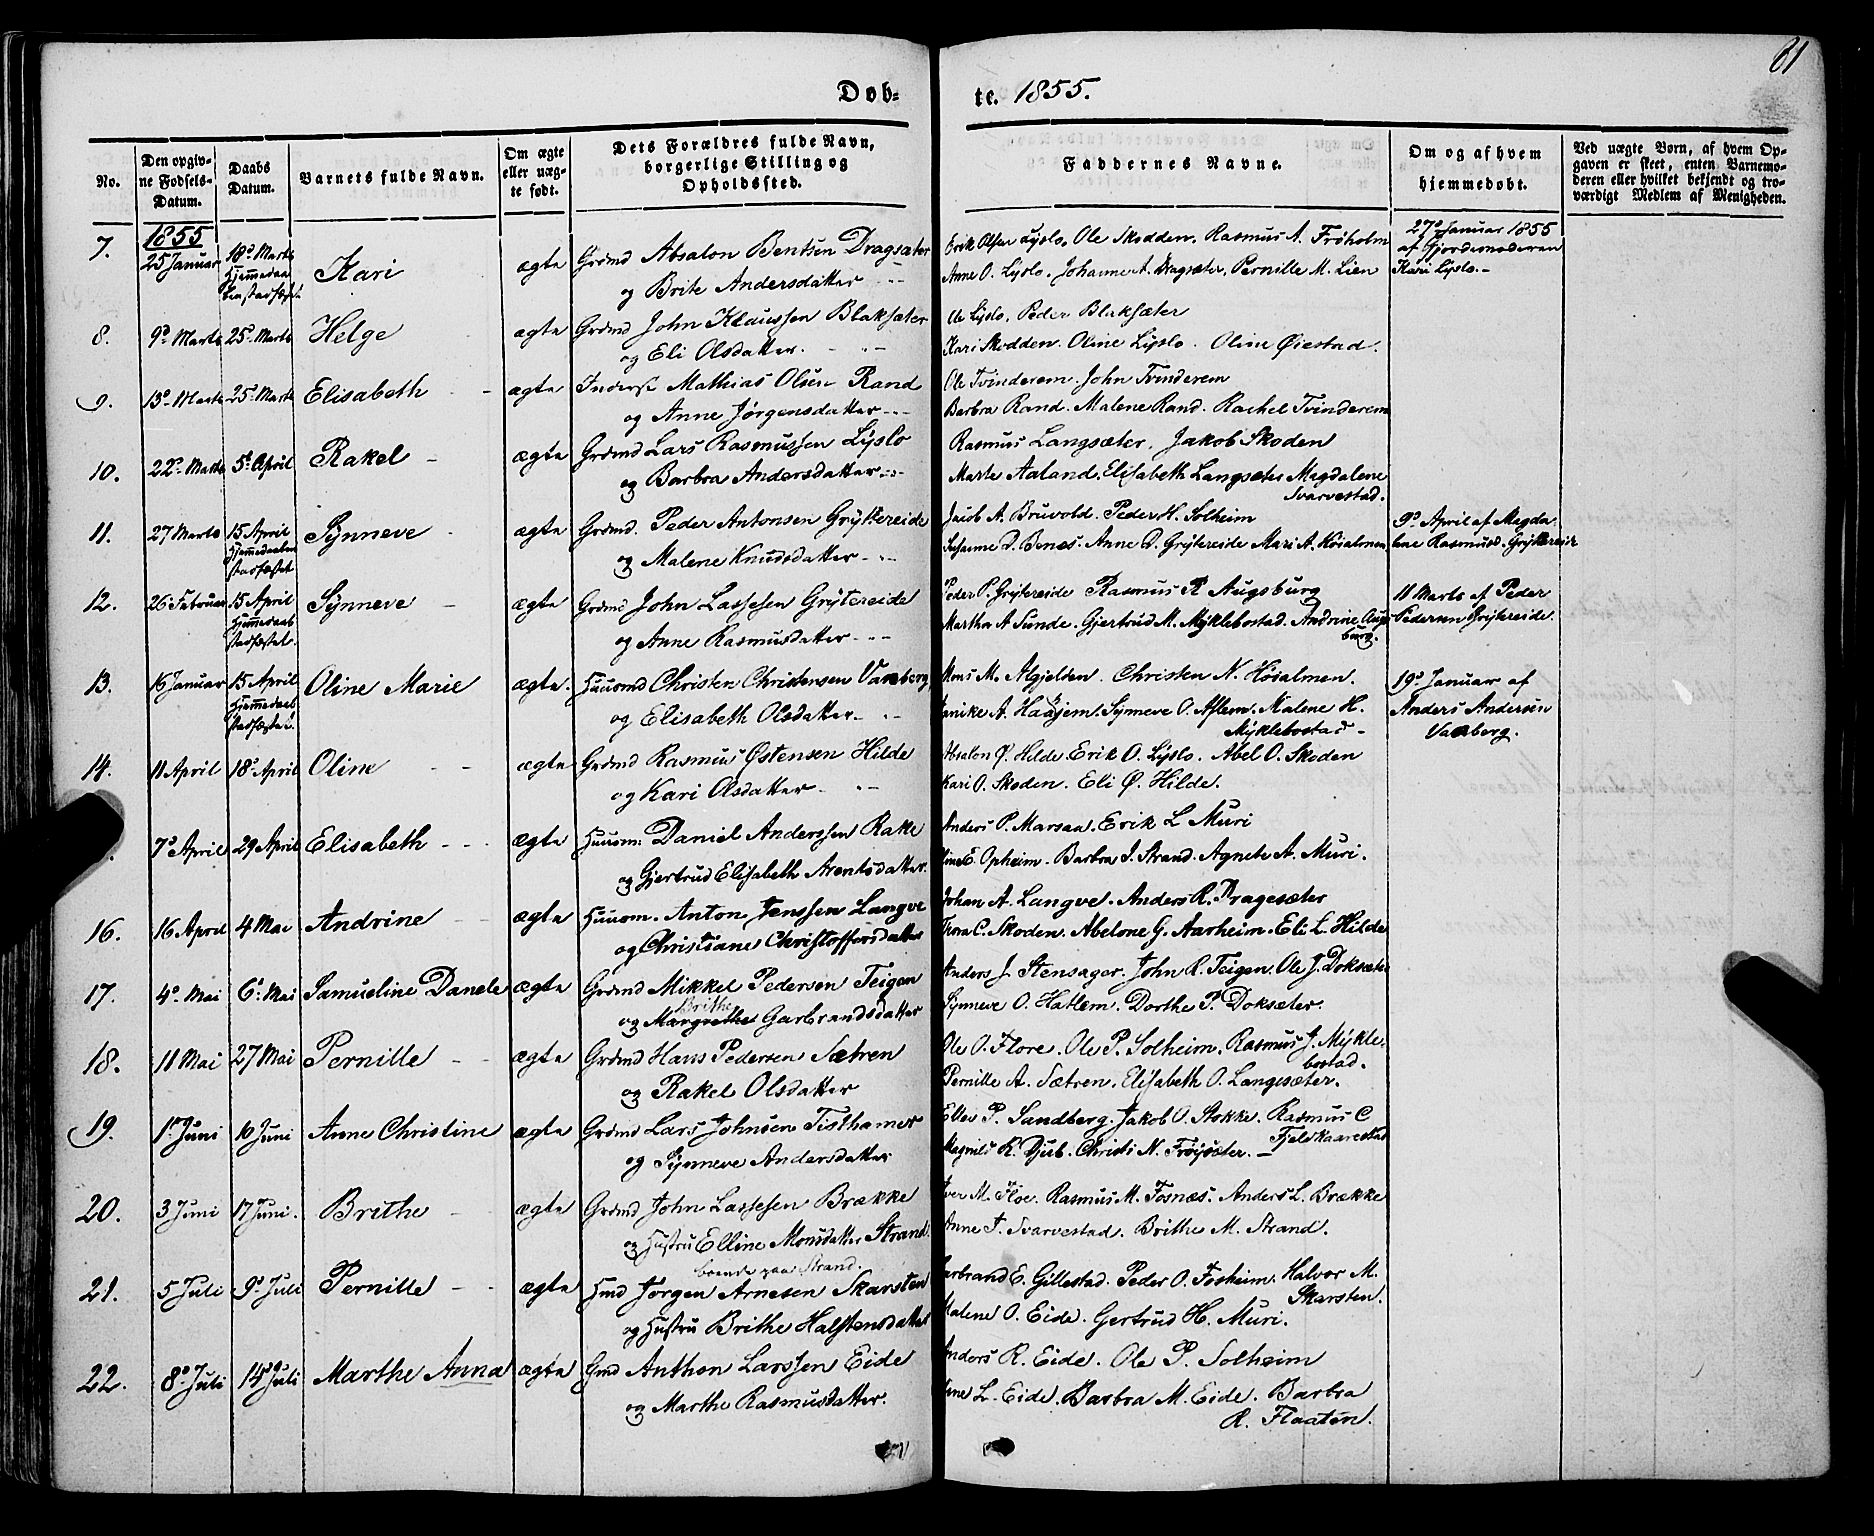 81
Døb-te. 1855.
No.
Den opgivne Fødsels-Datum.
Daabs Datum.
Barnets fulde Navn.
Om ægte eller uægte født.
Dets Forældres fulde Navn, borgerlige Stilling og Opholdssted.
Faddernes Navne.
Om og af hvem hjemmedøbt.
Ved uægte Børn, af hvem Opgaven er skeet, enten Barnemoderen eller hvilket bekjendt og troværdigt Medlem af Menigheden.
1855
7. 25 Januar 18d Marts Hjemmedaaben stadfæst. Kari ægte Grdmd Absalon Bentsen Dragsæter
og Brite Andersdatter
Erik Olsen Lyslo, Ole Skodden. Rasmus A. Frøholm
Anne O. Lyslo. Johanne A. Dragsæter, Pernille M. Lien
27d Januar 1855
af Gjordemoderen
Kari Lyslo.
8. 9d Marts 25 Marts Helge ægte Grdmd John Klaussen Blaksæter
og Eli Olsdatter.
Ole Lyslo, Peder Blaksæter
Kari Skodden. Oline Lyslo. Oline Øiestad.
9. 13d Marts 25 Marts Elisabeth ægte Inderst Mathias Olsen Rand
og Anne Jørgensdatter
Ole Tvinderem. John Tvinderem
Barbra Rand. Malene Rand. Rachel Tvinderem
10. 22d Marts 5d April Rakel ægte Grdmd Lars Rasmussen Lyslo
og Barbra Andersdatter
Rasmus Langsæter. Jakob Skoden
Marte Aaland. Elisabeth Langsæter Magdalene
Svarvestad.
11. 27 Marts 15 April Hjemmedaaben stadfæstet Synneve ægte Grdmd. Peder Antonsen Grytereide
og Malene Knudsdatter
Jacob A. Bruvold. Peder H. Solheim
Susanne D. Benes. Anne D. Grytereide Mari A. Høialmen
9d April af Magda
lene Rasmusd. Grytereide
12. 26 Februar 15 April Hjemmedaab stadfæstet. Synneve ægte Grdmd John Lassesen Grytereide
og Anne Rasmusdatter
Peder P. Grytereide Rasmus R Augsburg
Martha A Sunde. Gjertrud M. Myklebostad. Andrine Augs
burg.
11 Marts af Peder
Pedersen Grytereide.
13. 16 Januar 15 April Hjemmedaab stadfæstet. Oline Marie ægte. Huusmd Christen Christensen Vaaberg
og Elisabeth Olsdatter
Mons M. Mjelden. Christen N. Høialmen.
A. Haajem. Synneve O. Aflem. Malene H.
Myklebostad
19d Januar af
Anders Andersen
Vaaberg.
14. 11 April 18d April Oline ægte Grdmd Rasmus Østensen Hilde
og Kari Olsdatter
Absalon Ø. Hilde. Erik O. Lyslo. Abel O. Skoden
Kari O. Skoden. Eli Ø. Hilde.
7d April 29 April Elisabeth ægte Huusm: Daniel Anderssen Rake
og Gjertrud Elisabeth Arentsdatter.
Anders P. Marsaa. Erik L Muri
E. Opheim. Barbra J. Strand. Agnete A. Muri.
16. 16 April 4 Mai Andrine ægte Huusm. Anton Jenssen Langve
og Christiane Christoffersdatter
Johan A. Langve. Anders R. Dragesæter
Thora C. Skoden. Abelone G. Aarheim. Eli L. Hilde
17. 4d Mai 6d Mai Samueline Danele ægte Grdmd Mikkel Pedersen Teigen
Brithe
og Margrethe Garbrandsdatter
Anders J. Stensager. John R. Teigen. Ole J. Doksæter
Synneve O. Hatlem. Dorthe P. Doksæter.
18. 11 Mai 27 Mai Pernille ægte Grdmd Hans Pedersen Sætren
og Rakel Olsdatter
Ole O. Flore. Ole P. Solheim. Rasmus J. Mykle
bostad.
Pernille A. Sætren. Elisabeth O. Langesæter.
19. 1d Juni 10 Juni Anne Christine ægte Grdmd Lars Johnsen Tisthamer
og Synneve Andersdatter
Eller P. Sandberg. Jakob O. Stokke. Rasmus C
Fjelskaarestad
Magnild R. Djub. Christi N. Frøysæter.
20. 3 Juni 17 Juni. Brithe ægte Grdmd John Lassesen Brække
og Hustru Elline Monsdatter Strand.
boende paa Strand.
Iver M. Floe. Rasmus M. Fosnæs. Anders L. Brække
Anne T. Svarvestad. Brithe M. Strand.
21. 5 Juli 9d Juli Pernille ægte Hmd Jørgen Arnesen Skarsten
og Hustru Brithe Halstensdatter
Garbrand E. Gillestad. Peder O. Fosheim. Halvor M.
Skarsten.
Malene O. Eide. Gertrud H. Muri.
22. 8d Juli 14d Juli Marthe Anna ægte Gmd Anthon Larssen Eide
og Marthe Rasmusdatter.
Anders R. Eide. Ole P. Solheim
L. Eide. Barbra M. Eide. Barbra
R. Flaaten.